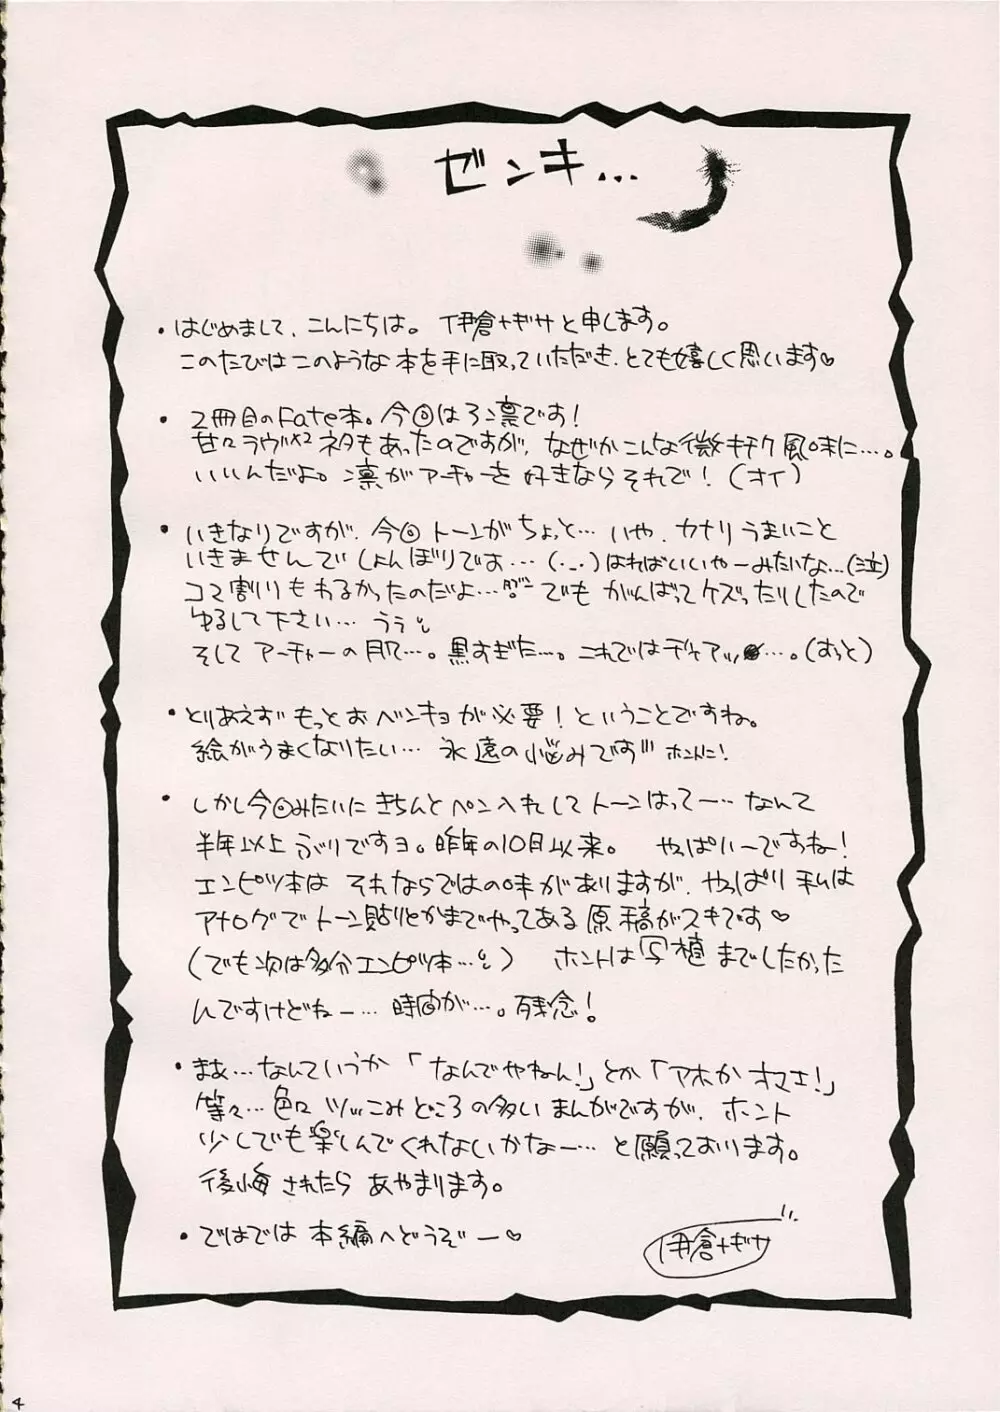 ゼンキ...
・はじめまして、こんにちは。伊倉ナギサと申します。
このたびはこのような本を手に取っていただき、とても嬉しく思います♡
・2冊目のFate本。今回は弓凛です!
甘々ラヴ×2ネタもあったのですが、なぜかこんな微キチク風味に…。
いいんだよ。凛がアーチャーを好きならそれで!(オイ)
・いきなりですが、今回トーンがちょっと…いや、カナリうまいこと
いきませんでしょんぼりでお…(・_・)はればいいやーみたいな…(泣)
コマ割りもわるかったのだよ… でもがんばってケズったりしたので
ゆるして下さい…うぅ
そしてアーチャーの肌…。黒すぎた…。これではギャアッ…。(もっと)
・とりあえずもっとおベンキョが必要!ということですね。
絵がうまくなりたい…永遠の悩みです!!! ホントに!
・しかし今回みたいにきちんとペン入れしてトーンはってー…なんて
半年以上ぶりですヨ。昨年の10月以来。 やっぱいーですね!
エンピツ本はそれならではの味がありますが、やっぱり私は
アナログでトーン貼りとかまでやってある原稿がスキです♡
(でも次は多分エンピツ本…) ホントは写植までしたかった
んですけどねー…時間が…。残念!
・まあ…なんていうか「なんでやねん!」とか「アホかオマエ!」
等々…色々ツッこみどころの多いまんがですが、ホント
少しでも楽しんでくれないかなー…と願っております。
後悔されたらあやまります。
・ではでは本編へどうぞー♡
伊倉ナギサ
4